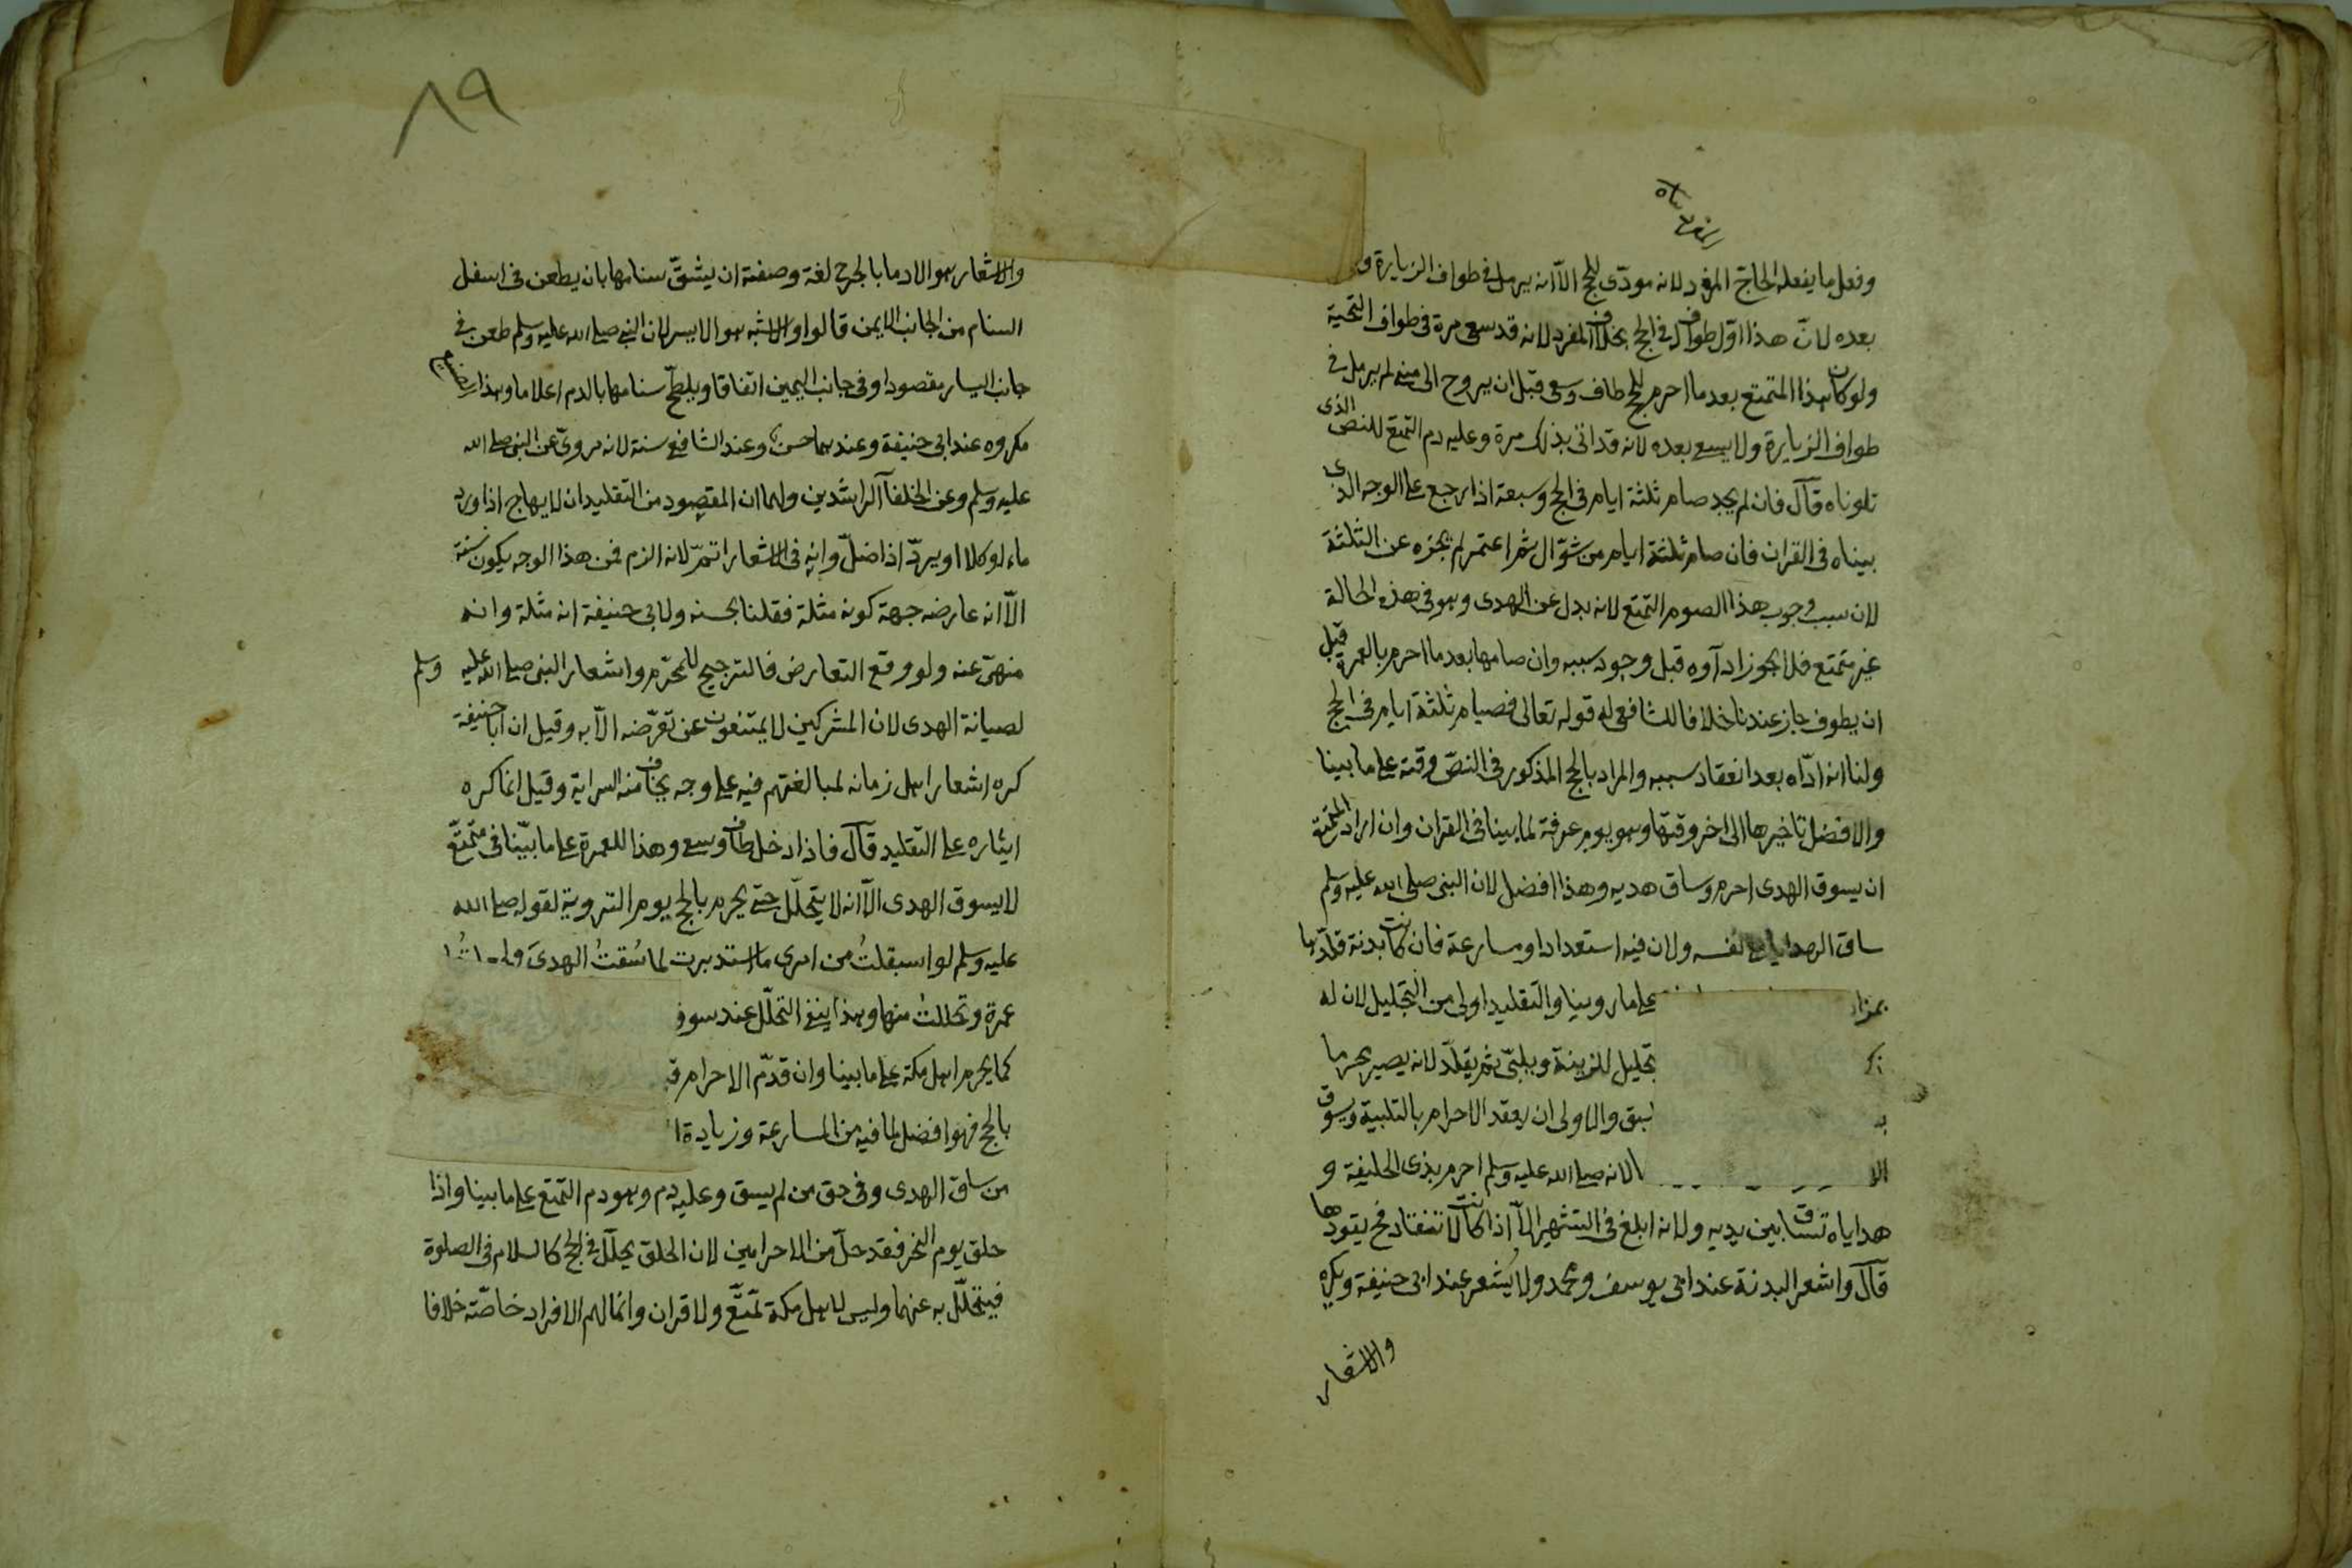 وفعل ما يفعله الحاج المفرد لانه مودّى للحج الاّ انه يرمل فى طواف الزيارة و
بعده لانّ هذا اوّل طواف له فى الحج بخلاف المفرد لانه قد سعى مرة فى طواف التحية
ولو كان هذا المتمتع بعد ما احرم للحج طاف وسعى قبل ان يروح الى منى لم يرمل فى
طواف الزيارة ولا يسعى بعده لانه قد اتى بذلك مرة وعليه دم التمتع للنص الذى
تلوناه قال فان لم يجد صام ثلثة ايام فى الحج وسبعة اذا رجع على الوجه الذى
بيناه فى القران فان صام ثلثة ايام من شوّال ثم اعتمر لم يجزه عن الثلثة
لان سبب وجوب هذا الصوم التمتع لانه بدل عن الهدى وهو فى هذه الحالة
غير متمتع فلا يجوز ادآوه قبل وجود سببه وان صامها بعد ما احرم بالعمرة قبل
ان يطوف جاز عندنا خلافا للشافعى له قوله تعالى فصيام ثلثة ايام فى الحج
ولنا انه ادّاه بعد انعقاد سببه والمراد بالحج المذكور فى النصّ وقته على ما بينا
والافضل تاخيرها الى اخر وقتها وهو يوم عرفة لما بينا فى القران وان اراد المتمتع
ان يسوق الهدى احرم وساق هديه وهذا افضل لان النبى صلى الله عليه وسلم
ساق الهدايا مع نفسه ولان فيه استعدادا ومسارعة فان كانت بدنة قلّدها
بمزاد على ما روينا والتقليد اولى من التجليل لان له
ذكر تجليل للزينة ويلبّى ثم يقلّد لانه يصير محرما
بـ سبق والاولى ان يعقد الاحرام بالتلبية ويسوق
الـ لانه صلى الله عليه وسلم احرم بذى الحليفة و
هداياه تساق بين يديه ولانه ابلغ فى التشهير الاّ اذا كانت لا تنقاد فح يقودها
قال واشعر البدنة عند ابى يوسف ومحمد ولا يُشعر عند ابى حنيفة ويكره
والاشعار
٨٩
والاشعار هو الادما بالجرح لغة وصفته ان يشقّ سنامها بان يطعن فى اسفل
السنام من الجانب الايمن قالوا والاشبه هو الايسر لان النبى صلى الله عليه وسلم طعن فى
جانب اليسار مقصودا وفى جانب اليمين اتفاقا ويلطّخ سنامها بالدم اعلاما وهذا
مكروه عند ابى حنيفة وعندهما حسن وعند الشافعى سنة لانه مروىّ عن النبى صلى الله
عليه وسلم وعن الخلفآ الراشدين ولهما ان المقصود من التقليد ان لا يهاج اذا ورد
ماء او كلاا او يردّ اذا ضلّ وانه فى الاشعار اتمّ لانه الزم فمن هذا الوجه يكون سنة
الاّ انه عارضه جهة كونه مثلة فقلنا بحسنه ولابى حنيفة انه مثلة وانه
منهىّ عنه ولو وقع التعارض فالترجيح للمحرّم واشعار النبى صلى الله عليه وسلم
لصيانة الهدى لان المشركين لا يمتنعون عن تعرّضه الاّ به وقيل ان ابا حنيفة
كره اشعار اهل زمانه لمبالغتهم فيه على وجه يخاف منه السراية وقيل انما كره
ايثاره على التقليد قال فاذا دخل طاف وسعى وهذا للعمرة على ما بيّنا فى متمتّع
لا يسوق الهدى الاّ انه لا يتحلّل حتى يحرم بالحج يوم التروية لقوله صلى الله
عليه وسلم لو استقبلتُ من امرى ما استدبرت لما سُقتُ الهدىَ
عمرة وتحللتُ منها وهذا ينفى التحلّل عند سوق
كما يحرم اهل مكة على ما بينا وان قدّم الاحرام
بالحج فهو افضل لما فيه من المسارعة وزيادة
من ساق الهدى وفى حق من لم يسق وعليه دم وهو دم التمتع على ما بينا واذا
حلق يوم النحر فقد حلّ من الاحرامين لان الحلق يحلّل فى الحج كالسلام فى الصلوة
فيتحلّل به عنهما وليس لاهل مكة تمتّع ولا قران وانما لهم الافراد خاصّة خلافا